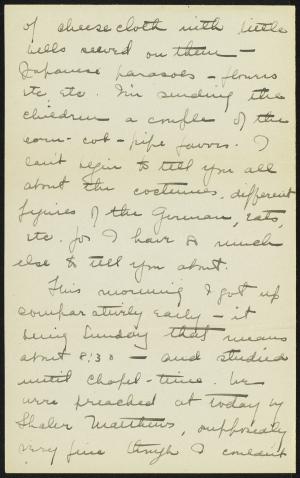 of cheese cloth with little
bells sewed on them –
Japanese parasols – flowers
etc etc. I'm sending the
children a couple of the
corn-cob-pipe favors. I
can't begin to tell you all
about the costumes, different
figures of the German, eats,
etc. for I have so much
else to tell you about.
This morning I got up
comparatively early – it
being Sunday that means
about 8:30 – and studied
until chapel-time. We
were preached at today by
Shaler Matthews, supposedly
very fine though I couldn't